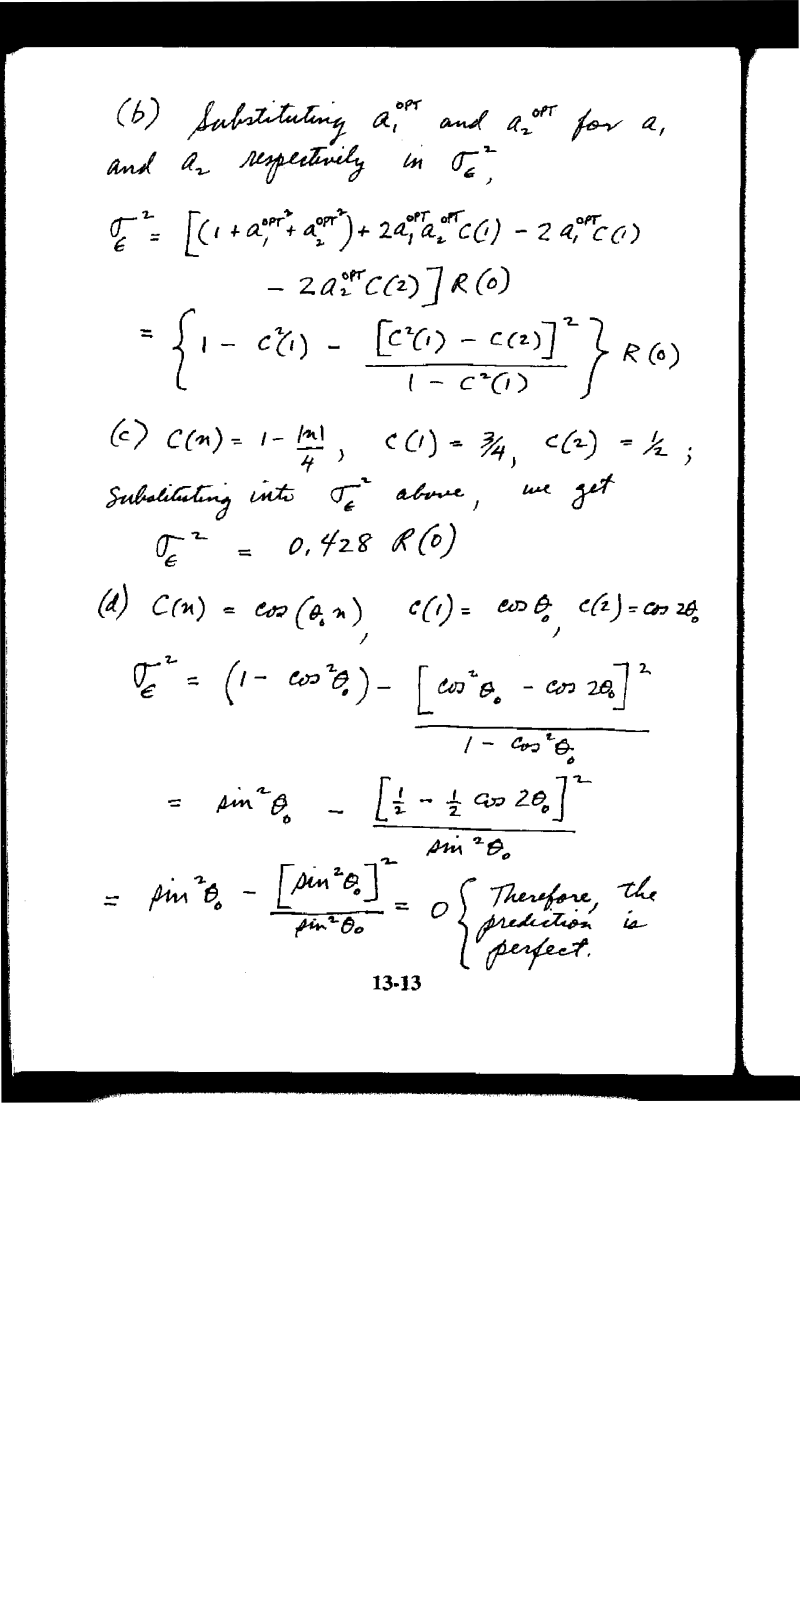 (b) Substituting a₁ᴼᴾᵀ and a₂ᴼᴾᵀ for a₁
and a₂ respectively in σ_ϵ²,
σ_ϵ² = [(1 + a₁ᴼᴾᵀ² + a₂ᴼᴾᵀ²) + 2a₁ᴼᴾᵀa₂ᴼᴾᵀC(1) − 2a₁ᴼᴾᵀC(1)
− 2a₂ᴼᴾᵀC(2)] R(0)
= {1 − C²(1) − [C²(1) − C(2)]² / (1 − C²(1))} R(0)
(c) C(n) = 1 − |n|/4, C(1) = 3/4, C(2) = 1/2;
Substituting into σ_ϵ² above, we get
σ_ϵ² = 0.428 R(0)
(d) C(n) = cos(θ₀n), C(1) = cos θ₀, C(2) = cos 2θ₀
σ_ϵ² = (1 − cos²θ₀) − [cos²θ₀ − cos 2θ₀]² / (1 − cos²θ₀)
= sin²θ₀ − [1/2 − 1/2 cos 2θ₀]² / sin²θ₀
= sin²θ₀ − [sin²θ₀]² / sin²θ₀ = 0 { Therefore, the
prediction is
perfect.
13-13